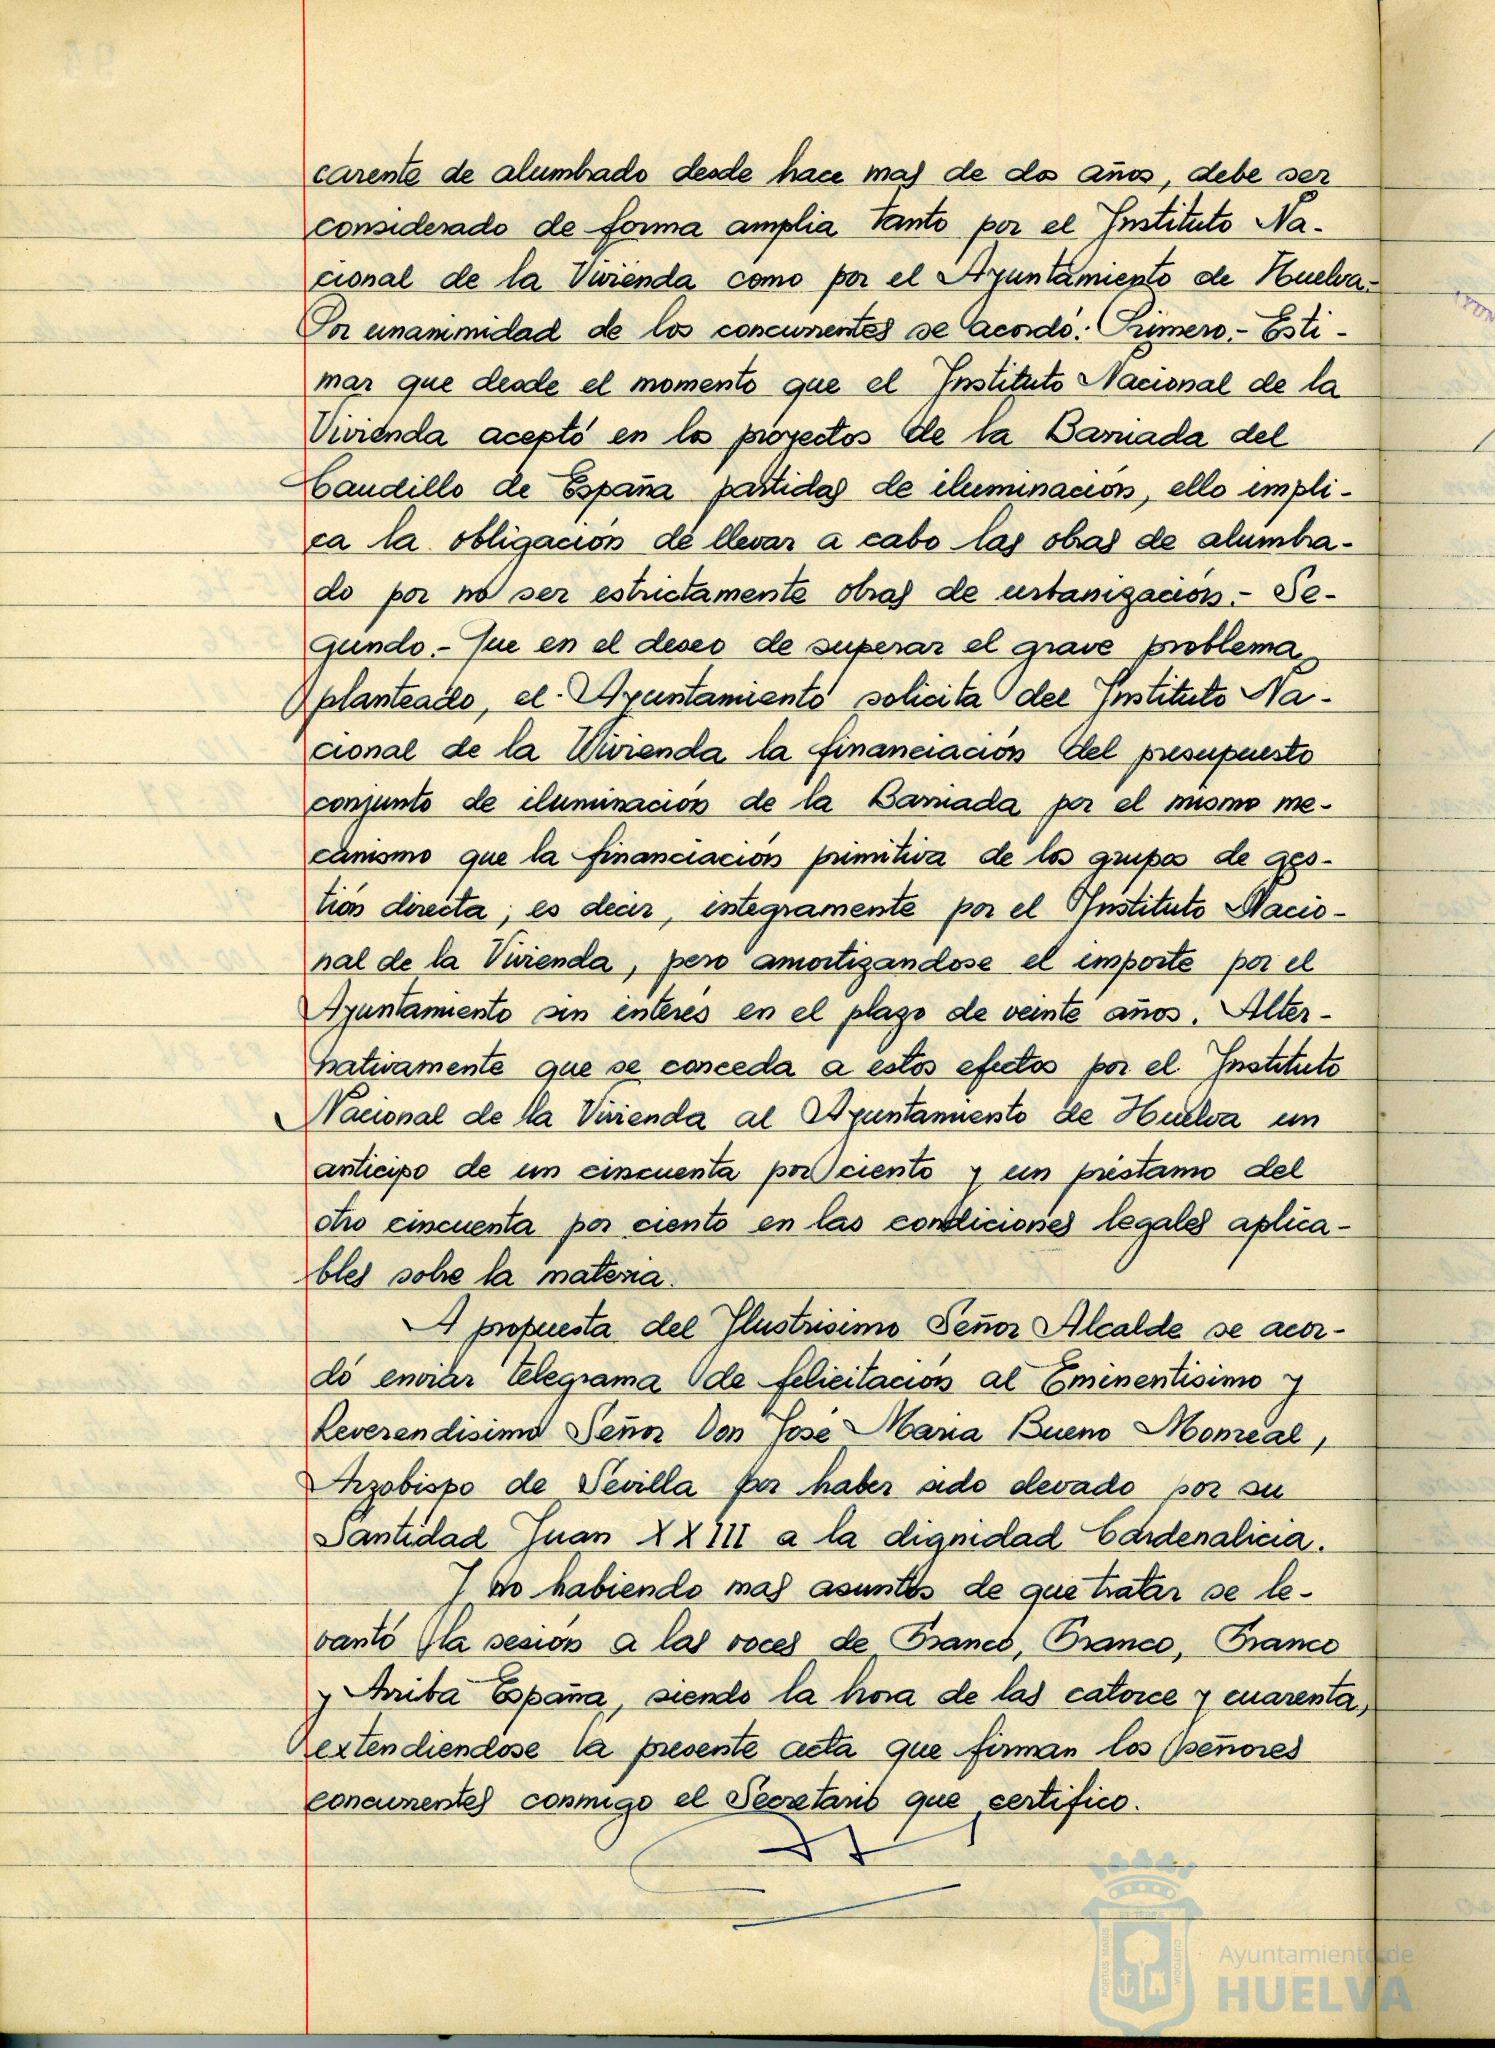 carente de alumbrado desde hace mas de dos años, debe ser
considerado de forma amplia tanto por el Instituto Na-
cional de la Vivienda como por el Ayuntamiento de Huelva.-
Por unanimidad de los concurrentes se acordó: Primero.- Esti-
mar que desde el momento que el Instituto Nacional de la
Vivienda aceptó en los proyectos de la Barriada del
Caudillo de España partidas de iluminación, ello impli-
ca la obligación de llevar a cabo las obras de alumbra-
do por no ser estrictamente obras de urbanización.- Se-
gundo.- Que en el deseo de superar el grave problema
planteado, el Ayuntamiento solicita del Instituto Na-
cional de la Vivienda la financiación del presupuesto
conjunto de iluminación de la Barriada por el mismo me-
canismo que la financiación primitiva de los grupos de ges-
tión directa; es decir, integramente por el Instituto Nacio-
nal de la Vivienda, pero amortizandose el importe por el
Ayuntamiento sin interés en el plazo de veinte años. Alter-
nativamente que se conceda a estos efectos por el Instituto
Nacional de la Vivienda al Ayuntamiento de Huelva un
anticipo de un cincuenta por ciento y un préstamo del
otro cincuenta por ciento en las condiciones legales aplica-
bles sobre la materia.
A propuesta del Ilustrisimo Señor Alcalde se acor-
dó enviar telegrama de felicitación al Eminentisimo y
Reverendisimo Señor Don José Maria Bueno Monreal,
Arzobispo de Sevilla por haber sido elevado por su
Santidad Juan XXIII a la dignidad Cardenalicia.
Y no habiendo mas asuntos de que tratar se le-
vantó la sesión a las voces de Franco, Franco, Franco
y Arriba España, siendo la hora de las catorce y cuarenta,
extendiendose la presente acta que firman los señores
concurrentes conmigo el Secretario que certifico.
Ayuntamiento de
HUELVA